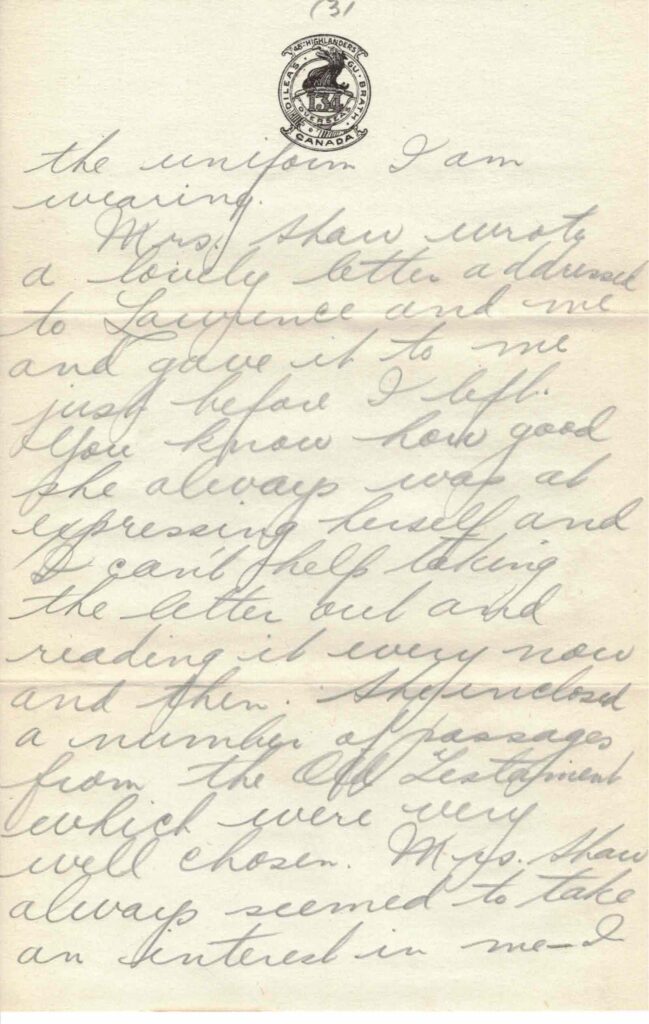 (3)
48TH HIGHLANDERS
DILEAS GU BRATH
134
OVERSEAS
CANADA
the uniform I am
wearing.
Mrs. Shaw wrote
a lovely letter addressed
to Lawrence and me
and gave it to me
just before I left.
You know how good
she always was at
expressing herself and
I can't help taking
the letter out and
reading it every now
and then. She inclosed
a number of passages
from the Old Testament
which were very
well chosen. Mrs. Shaw
always seemed to take
an interest in me—I